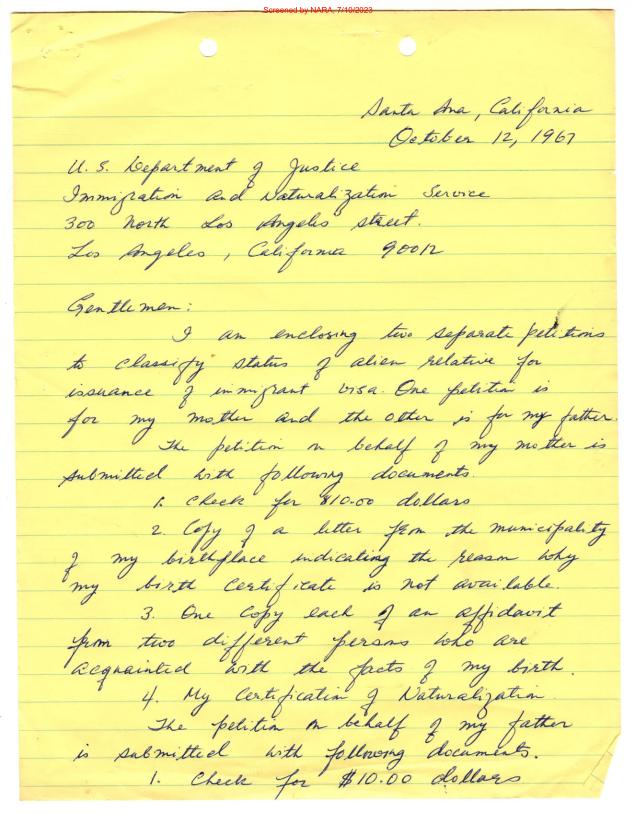 Screened by NARA, 7/10/2023
Santa Ana, California
October 12, 1967
U. S. Department of Justice
Immigration and Naturalization Service
300 North Los Angeles street.
Los Angeles, California 90012
Gentlemen:
I am enclosing two separate petitions
to classify status of alien relative for
issuance of immigrant visa. One petition is
for my mother and the other is for my father.
The petition on behalf of my mother is
submitted with following documents.
1. Check for $10.00 dollars
2. Copy of a letter from the municipality
of my birthplace indicating the reason why
my birth certificate is not available.
3. One copy each of an affidavit
from two different persons who are
acquainted with the facts of my birth.
4. My Certification of Naturalization.
The petition on behalf of my father
is submitted with following documents.
1. Check for $10.00 dollars